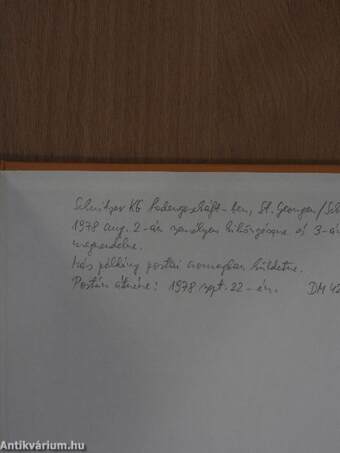 Schnitzer KG Ladengeschäft-ben, St. Georgen/Sch
1978 aug. 2-án személyes kikérésre és 3-án
megrendelve.
Más példány postai csomagban küldetve.
Postán átvéve: 1978 szept. 22-én. DM 42
Antikvárium.hu